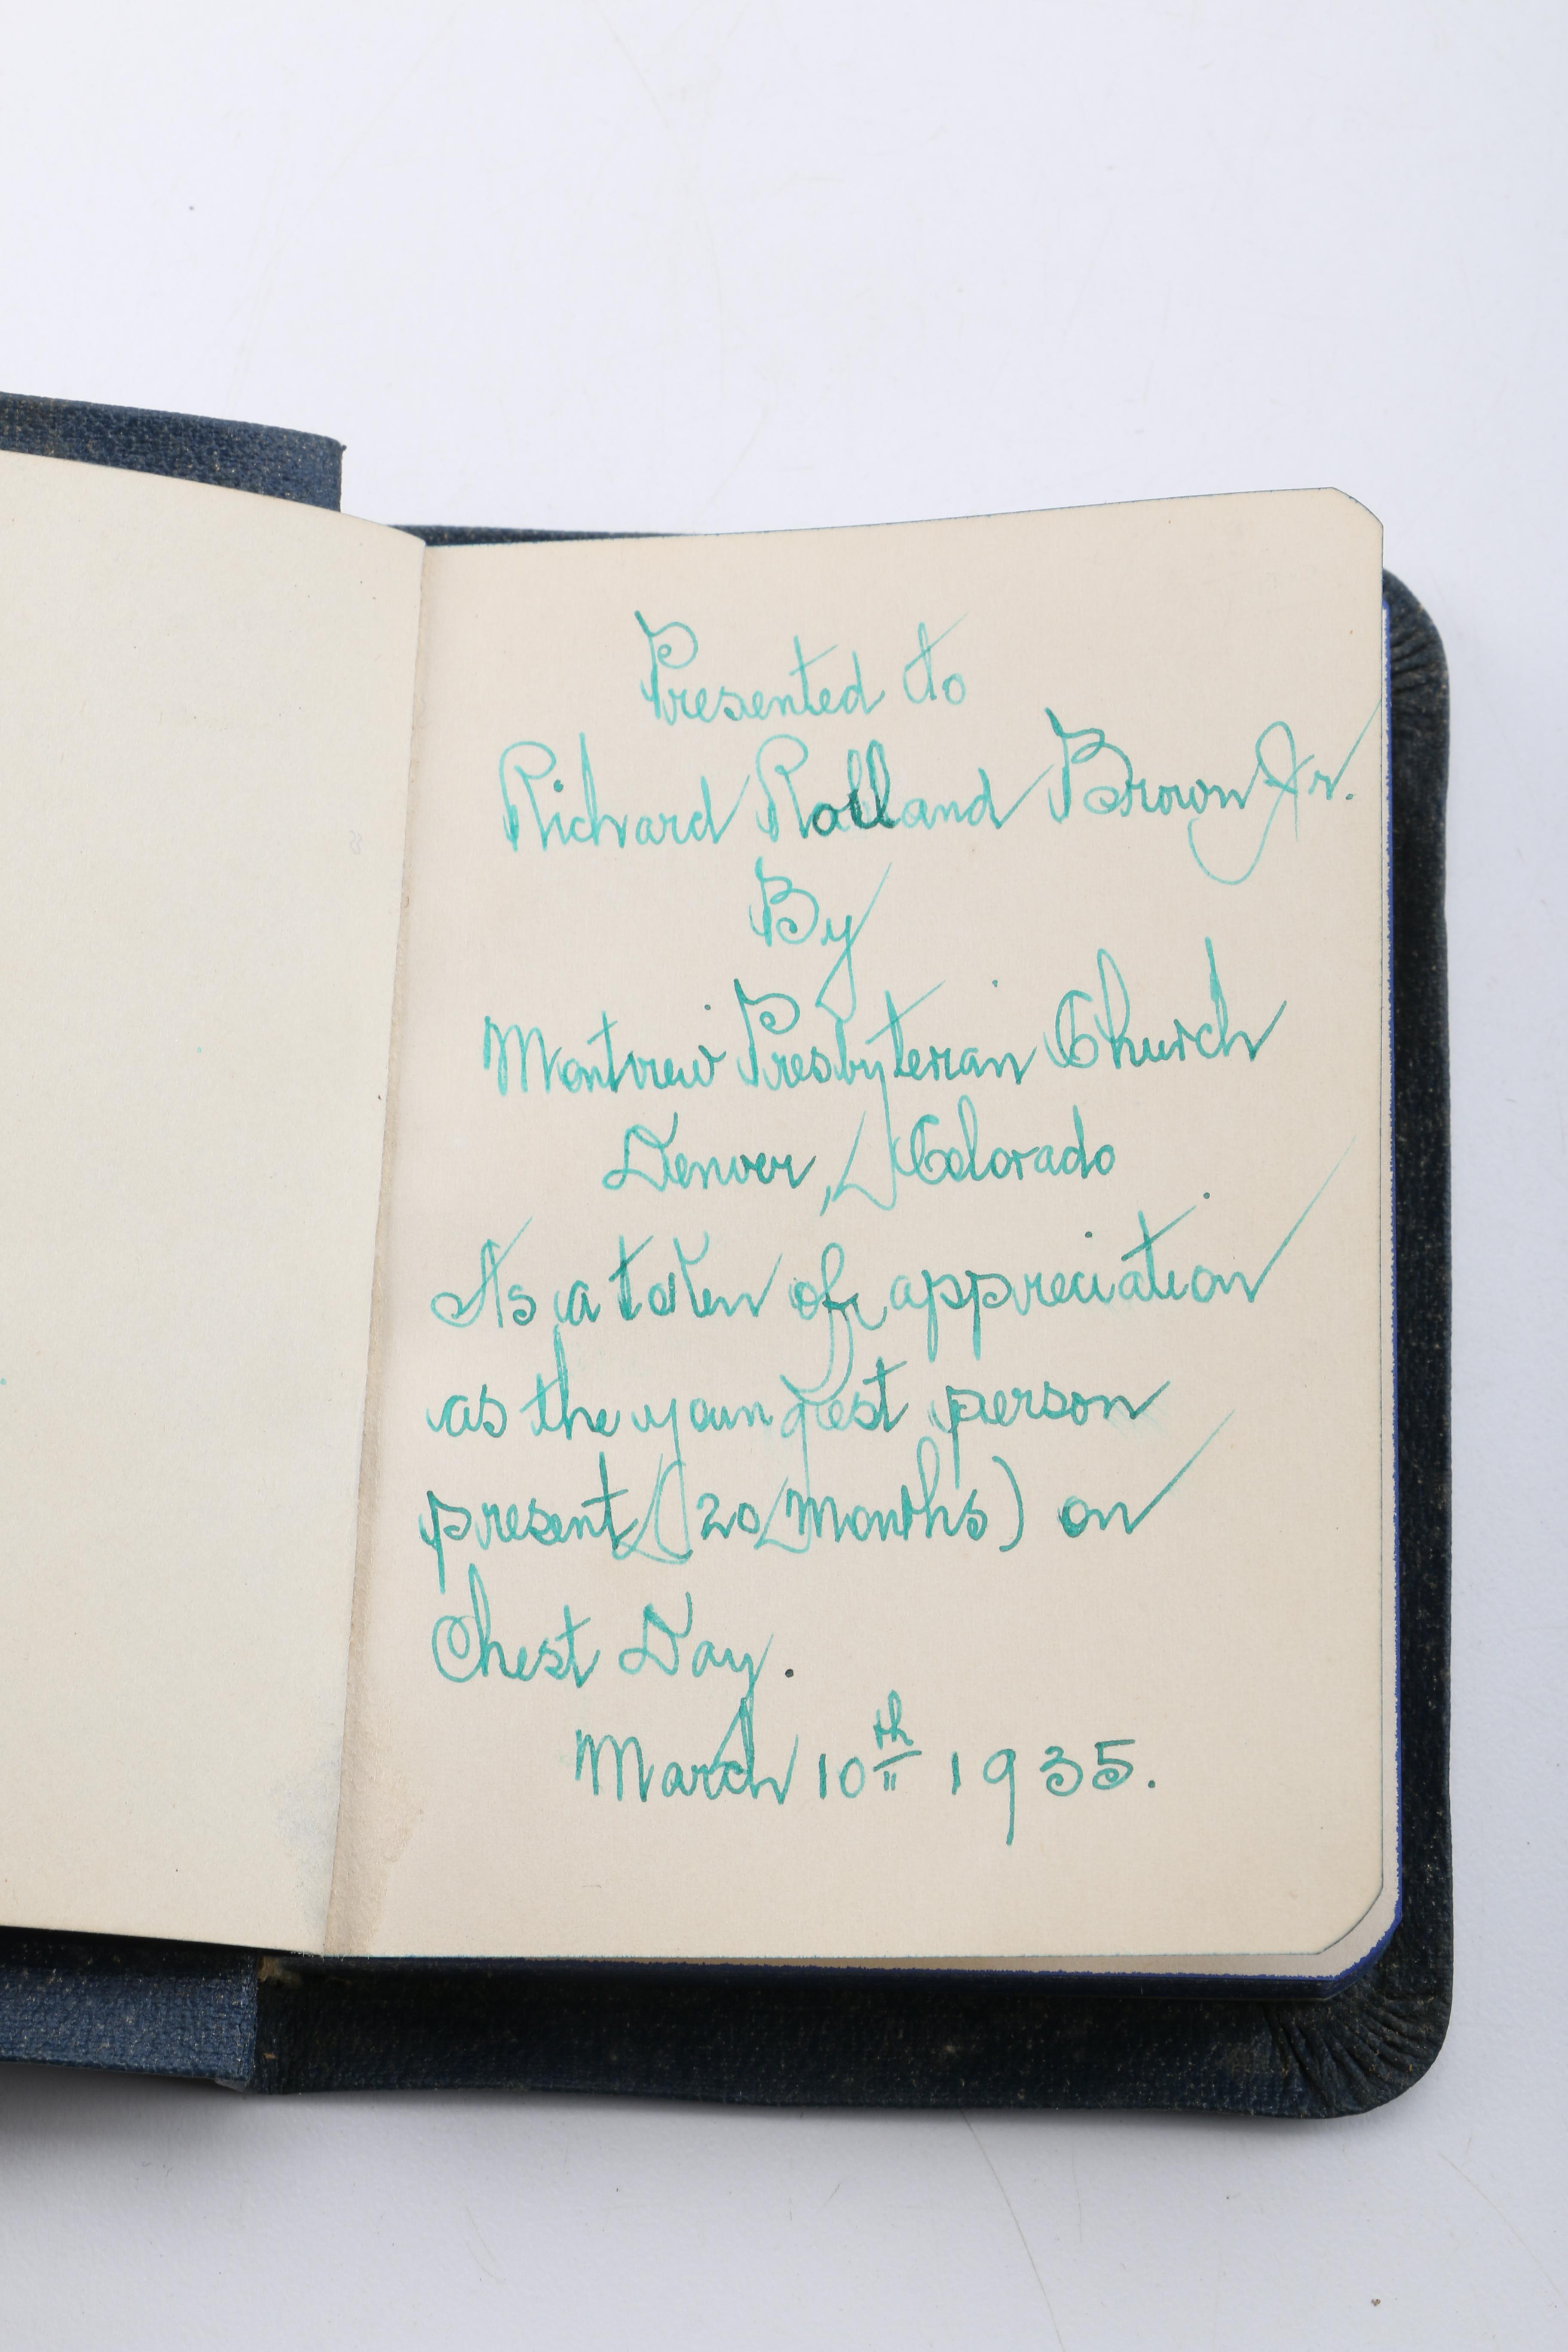 Presented to
Richard Rolland Brown Jr.
By
Montview Presbyterian Church
Denver, Colorado
As a token of appreciation
as the youngest person
present (20 Months) on
Chest Day.
March 10th 1935.